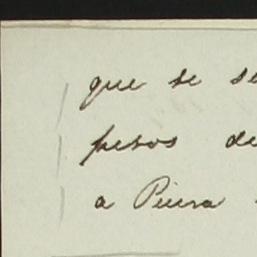 que se se
pesos de
a Piura